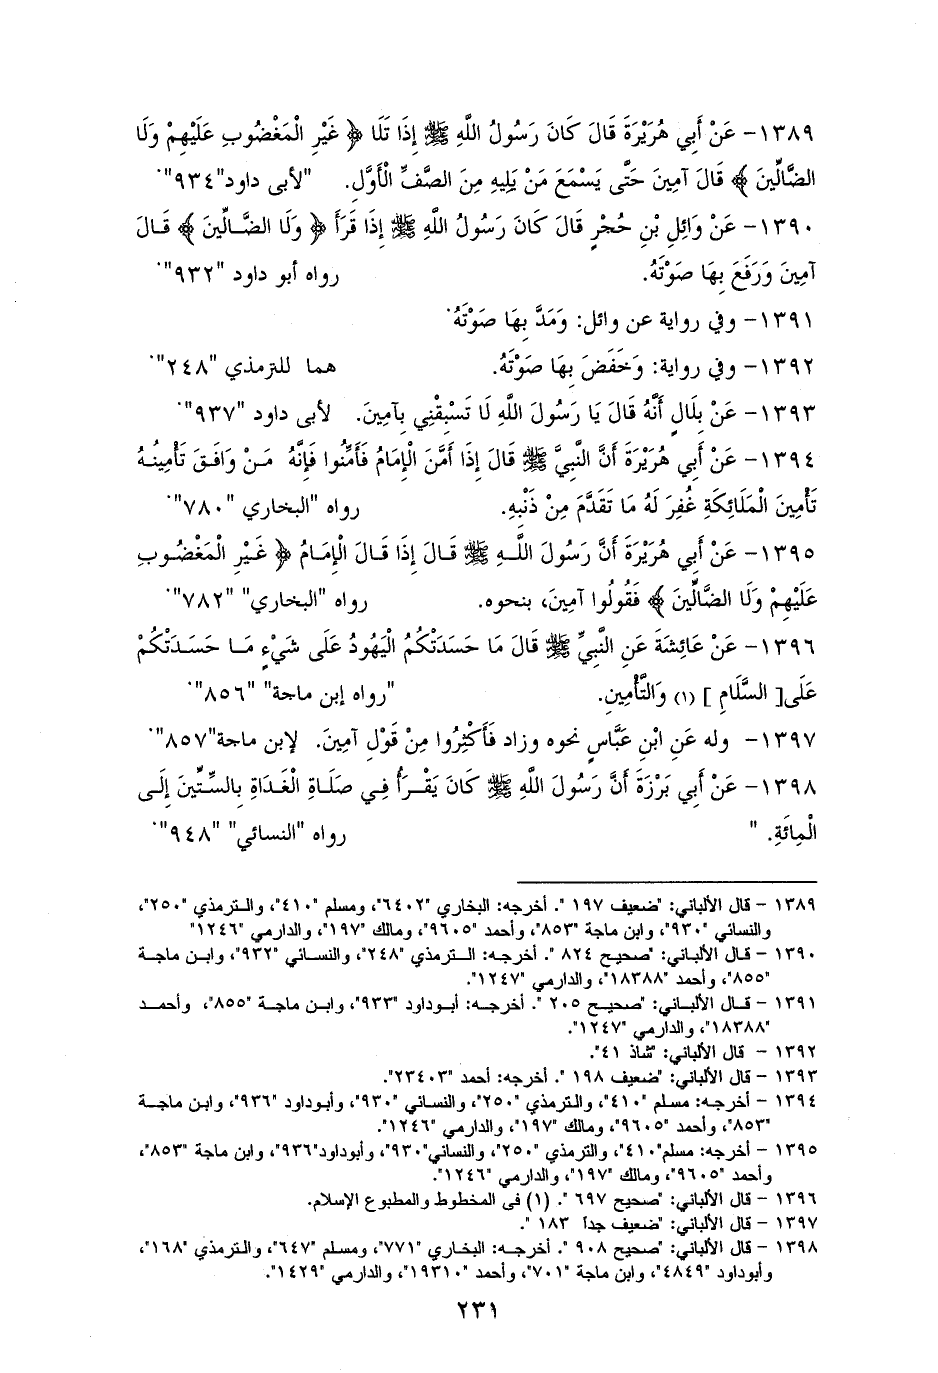 ١٣٨٩- عَنْ أَبِي هُرَيْرَةَ قَالَ كَانَ رَسُولُ اللَّهِ ﷺ إِذَا تَلَا ﴿ غَيْرِ الْمَغْضُوبِ عَلَيْهِمْ وَلَا
الضَّالِّينَ ﴾ قَالَ آمِينَ حَتَّى يَسْمَعَ مَنْ يَلِيهِ مِنَ الصَّفِّ الْأَوَّلِ. "لأبى داود"٩٣٤".
١٣٩٠- عَنْ وَائِلِ بْنِ حُجْرٍ قَالَ كَانَ رَسُولُ اللَّهِ ﷺ إِذَا قَرَأَ ﴿ وَلَا الضَّالِّينَ ﴾ قَالَ
آمِينَ وَرَفَعَ بِهَا صَوْتَهُ. رواه أبو داود "٩٣٢".
١٣٩١- وفي رواية عن وائل: وَمَدَّ بِهَا صَوْتَهُ.
١٣٩٢- وفي رواية: وَخَفَضَ بِهَا صَوْتَهُ. هما للترمذي "٢٤٨".
١٣٩٣- عَنْ بِلَالٍ أَنَّهُ قَالَ يَا رَسُولَ اللَّهِ لَا تَسْبِقْنِي بِآمِينَ. لأبى داود "٩٣٧".
١٣٩٤- عَنْ أَبِي هُرَيْرَةَ أَنَّ النَّبِيَّ ﷺ قَالَ إِذَا أَمَّنَ الْإِمَامُ فَأَمِّنُوا فَإِنَّهُ مَنْ وَافَقَ تَأْمِينُهُ
تَأْمِينَ الْمَلَائِكَةِ غُفِرَ لَهُ مَا تَقَدَّمَ مِنْ ذَنْبِهِ. رواه "البخاري "٧٨٠".
١٣٩٥- عَنْ أَبِي هُرَيْرَةَ أَنَّ رَسُولَ اللَّهِ ﷺ قَالَ إِذَا قَالَ الْإِمَامُ ﴿ غَيْرِ الْمَغْضُوبِ
عَلَيْهِمْ وَلَا الضَّالِّينَ ﴾ فَقُولُوا آمِينَ، بنحوه. رواه "البخاري" "٧٨٢".
١٣٩٦- عَنْ عَائِشَةَ عَنِ النَّبِيِّ ﷺ قَالَ مَا حَسَدَتْكُمُ الْيَهُودُ عَلَى شَيْءٍ مَا حَسَدَتْكُمْ
عَلَى[ السَّلَامِ ] (١) وَالتَّأْمِينِ. "رواه إبن ماجة" "٨٥٦".
١٣٩٧- وله عَنِ ابْنِ عَبَّاسٍ نحوه وزاد فَأَكْثِرُوا مِنْ قَوْلِ آمِينَ. لإبن ماجة"٨٥٧".
١٣٩٨- عَنْ أَبِي بَرْزَةَ أَنَّ رَسُولَ اللَّهِ ﷺ كَانَ يَقْرَأُ فِي صَلَاةِ الْغَدَاةِ بِالسِّتِّينَ إِلَى
الْمِائَةِ. " رواه "النسائي" "٩٤٨".
١٣٨٩ - قال الألباني: "ضعيف ١٩٧ ". أخرجه: البخاري "٦٤٠٢"، ومسلم "٤١٠"، والترمذي "٢٥٠"،
والنسائي "٩٣٠"، وابن ماجة "٨٥٣"، وأحمد "٩٦٠٥"، ومالك "١٩٧"، والدارمي "١٢٤٦"
١٣٩٠ - قال الألباني: "صحيح ٨٢٤ ". أخرجه: الترمذي "٢٤٨"، والنسائي "٩٣٢"، وابن ماجة
"٨٥٥"، وأحمد "١٨٣٨٨"، والدارمي "١٢٤٧".
١٣٩١ - قال الألباني: "صحيح ٢٠٥ ". أخرجه: أبوداود "٩٣٣"، وابن ماجة "٨٥٥"، وأحمد
"١٨٣٨٨"، والدارمي "١٢٤٧".
١٣٩٢ - قال الألباني: "شاذ ٤١".
١٣٩٣ - قال الألباني: "ضعيف ١٩٨ ". أخرجه: أحمد "٢٣٤٠٣".
١٣٩٤ - أخرجه: مسلم "٤١٠"، والترمذي "٢٥٠"، والنسائي "٩٣٠"، وأبوداود "٩٣٦"، وابن ماجة
"٨٥٣"، وأحمد "٩٦٠٥"، ومالك "١٩٧"، والدارمي "١٢٤٦".
١٣٩٥ - أخرجه: مسلم"٤١٠"، والترمذي "٢٥٠"، والنسائي"٩٣٠"، وأبوداود"٩٣٦"، وابن ماجة "٨٥٣"،
وأحمد "٩٦٠٥"، ومالك "١٩٧"، والدارمي "١٢٤٦".
١٣٩٦ - قال الألباني: "صحيح ٦٩٧ ". (١) فى المخطوط والمطبوع الإسلام.
١٣٩٧ - قال الألباني: "ضعيف جداً ١٨٣ ".
١٣٩٨ - قال الألباني: "صحيح ٩٠٨ ". أخرجه: البخاري "٧٧١"، ومسلم "٦٤٧"، والترمذي "١٦٨"،
وأبوداود "٤٨٤٩"، وابن ماجة "٧٠١"، وأحمد "١٩٣١٠"، والدارمي "١٤٢٩".
٢٣١